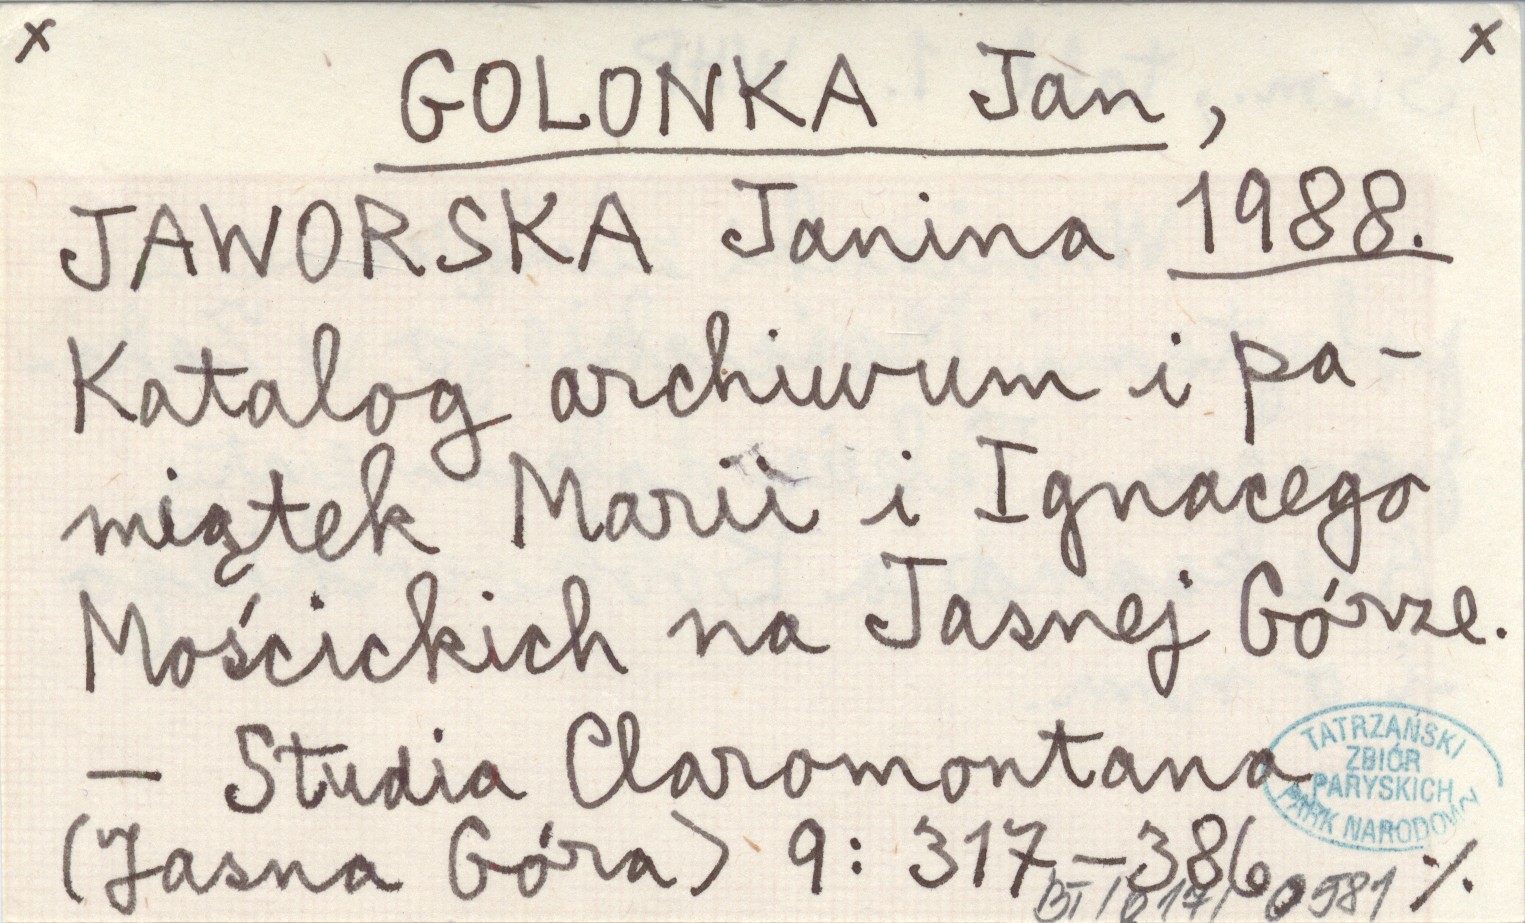 x x
GOLONKA Jan,
JAWORSKA Janina 1988.
Katalog archiwum i pa-
miątek Marii i Ignacego
Mościckich na Jasnej Górze.
— Studia Claromontana
(Jasna Góra) 9: 317–386. ./.
TATRZAŃSKI
ZBIÓR
PARYSKICH
PARK NARODOWY